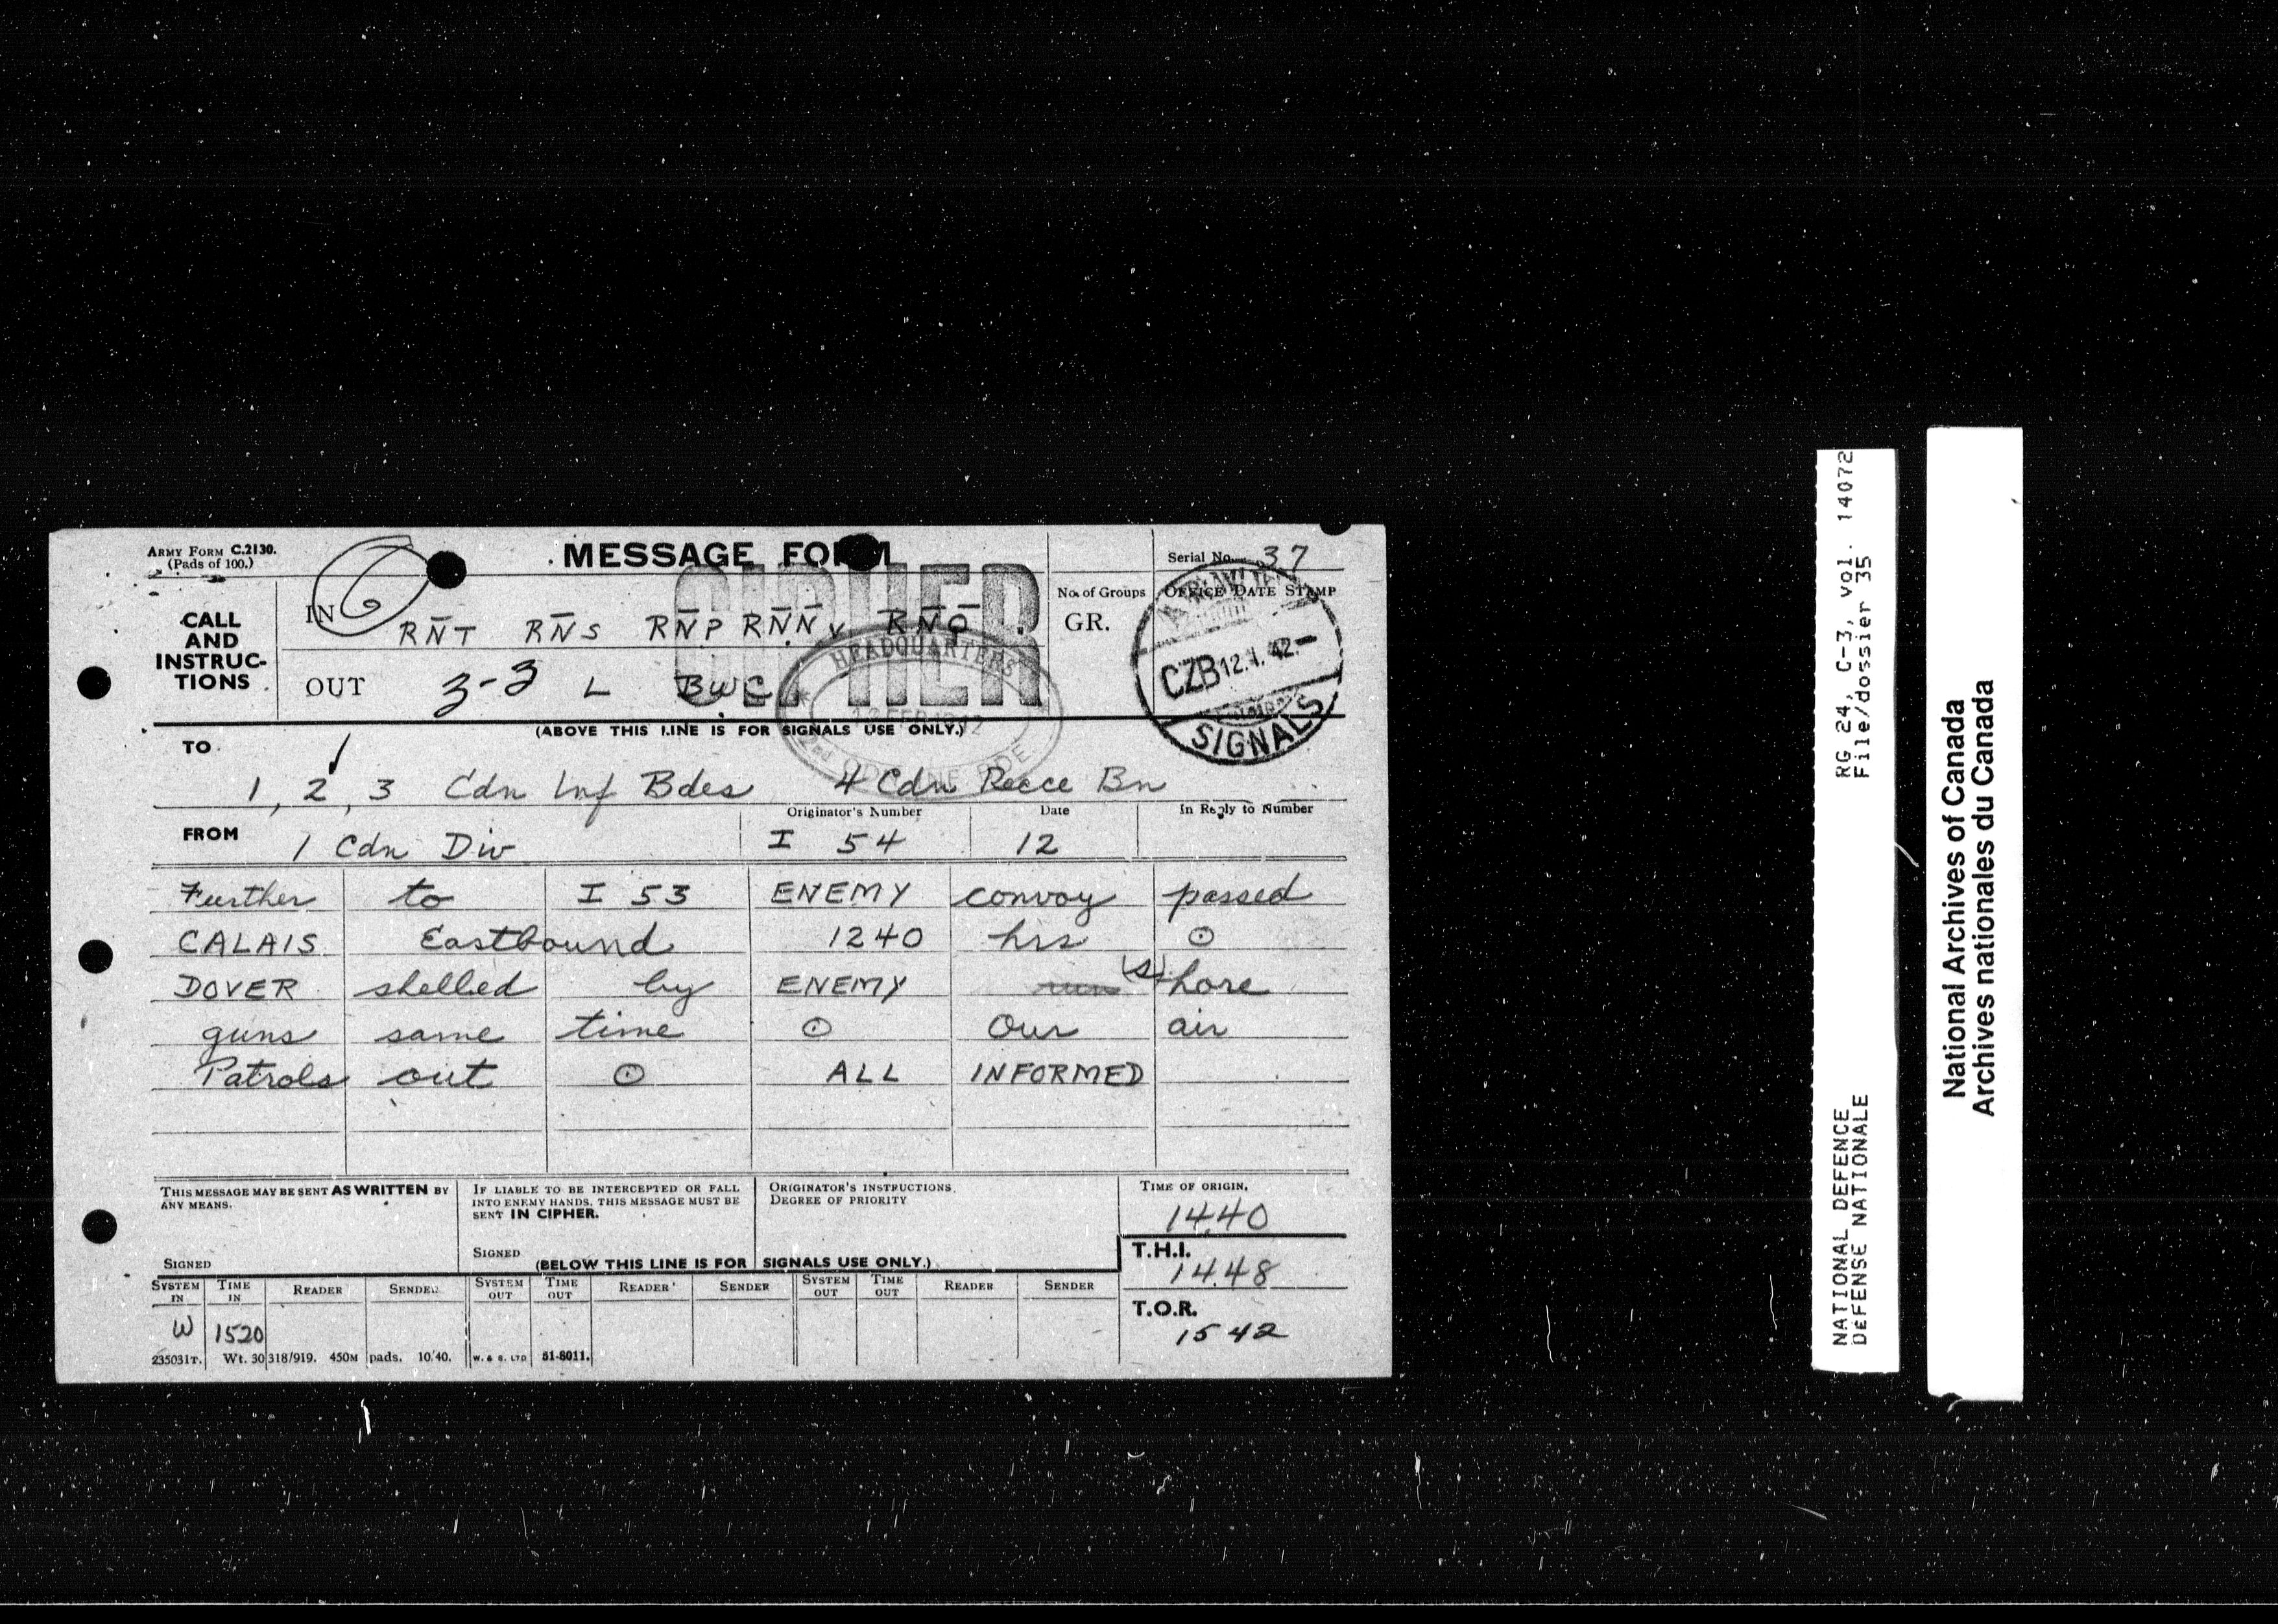 ARMY FORM C.2130.
(Pads of 100.)
MESSAGE FORM
Serial No. 37
CIPHER
No. of Groups
GR.
OFFICE DATE STAMP
CALL AND INSTRUC-TIONS
IN
RNT RNS RNP RNN v RNO
OUT
3-3 L BWC
HEADQUARTERS
CZB 12.1.42.-
SIGNALS
(ABOVE THIS LINE IS FOR SIGNALS USE ONLY.)
TO
1, 2, 3 Cdn Inf Bdes 4 Cdn Recce Bn
FROM
1 Cdn Div
Originator's Number
I 54
Date
12
In Reply to Number
Further to I 53 ENEMY convoy passed
CALAIS Eastbound 1240 hrs ⊙
DOVER shelled by ENEMY (s)hore
guns same time ⊙ Our air
Patrols out ⊙ ALL INFORMED
THIS MESSAGE MAY BE SENT AS WRITTEN BY ANY MEANS.
SIGNED
IF LIABLE TO BE INTERCEPTED OR FALL INTO ENEMY HANDS, THIS MESSAGE MUST BE SENT IN CIPHER.
SIGNED
ORIGINATOR'S INSTRUCTIONS.
DEGREE OF PRIORITY
TIME OF ORIGIN.
1440
(BELOW THIS LINE IS FOR SIGNALS USE ONLY.)
T.H.I.
1448
SYSTEM IN TIME IN READER SENDER SYSTEM OUT TIME OUT READER SENDER SYSTEM OUT TIME OUT READER SENDER
T.O.R.
1542
W 1520
235031T. Wt. 30318/919. 450M pads. 10.40. W. & S. LTD 51-8011.
RG 24, C-3, vol. 14072
File/dossier 35
NATIONAL DEFENCE
DEFENSE NATIONALE
National Archives of Canada
Archives nationales du Canada